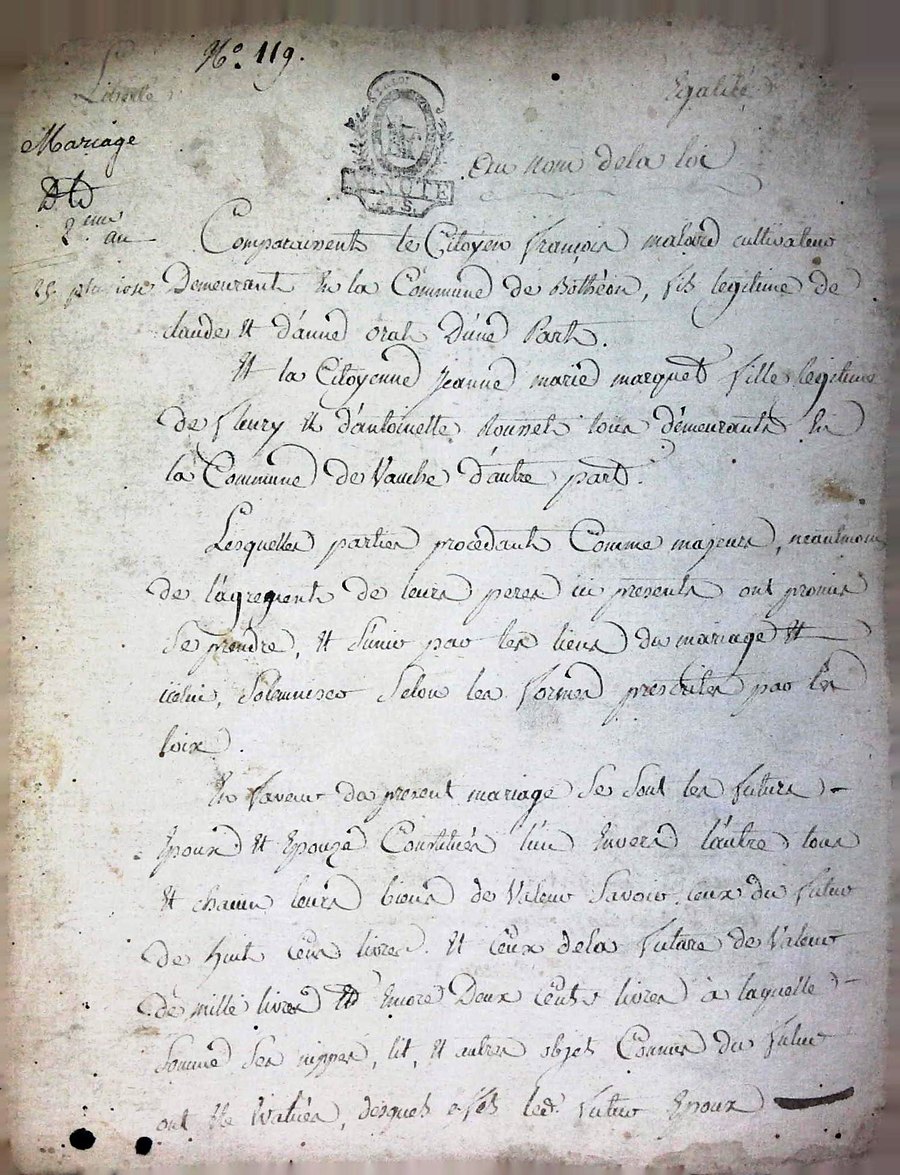 N.º 119.
Liberté
Egalité
Mariage
2.eme an
Au nom de la loi
Comparurent le Citoyen françois malard cultivateur
25 pluviose
Demeurant En la Commune de Bothéon, fils legitime de
claude Et d'anne oral D'une Part.
Et la Citoyenne jeanne marie marquet fille legitime
de fleury Et d'antoinette Rousset tous demeurants En
la Commune de Vauche d'autre part.
Lesquelles parties procedant Comme majeurs, neantmoins
de l'agrement de leurs peres ici presents ont promis
Se prendre, Et S'unir par les liens du mariage Et
icelui, Solemniser Selon les formes prescrites par les
loix.
En faveur du present mariage Se Sont les futurs
Epoux Et Epouze Constitués l'un Envers l'autre tous
Et chacun leurs biens de Valeur Savoir, ceux du futur
de huit cens livres. Et ceux de la future de Valeur
de mille livres Encore Deux cents livres à laquelle
Somme Ses nippes, lit, Et autres objets Connus du futur
ont Eté Evalués, desquels effets led. futur Epoux